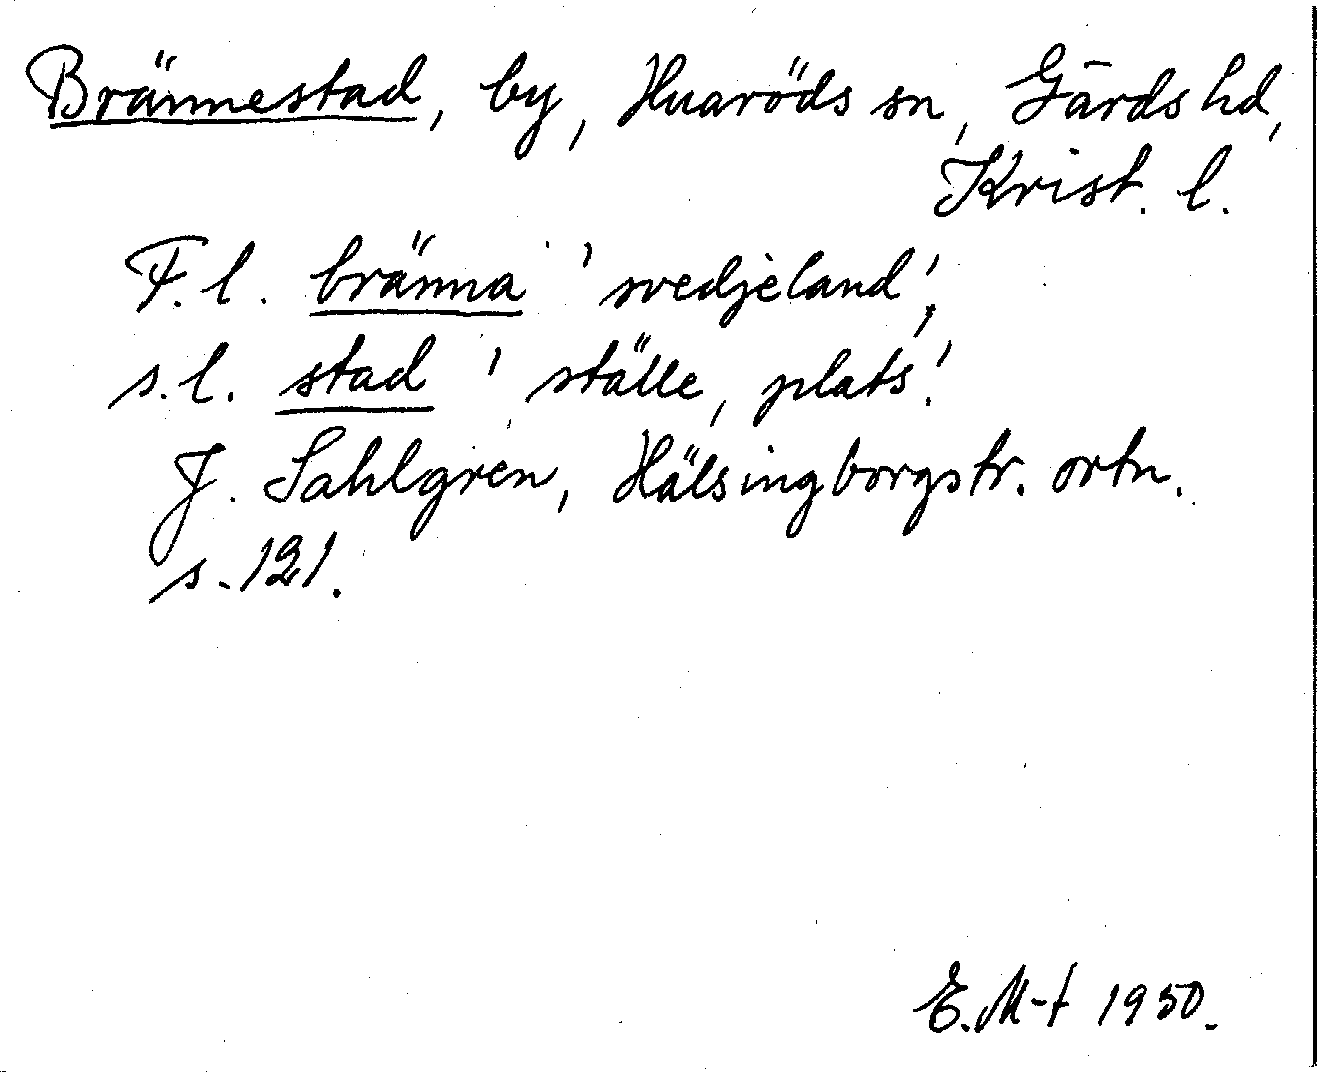 Brännestad, by, Huaröds sn, Gärds hd,
Krist. l.
F.l. bränna 'svedjeland',
s.l. stad 'ställe, plats'.
J. Sahlgren, Hälsingborgstr. ortn.
s. 121.
E. M-t 1950.